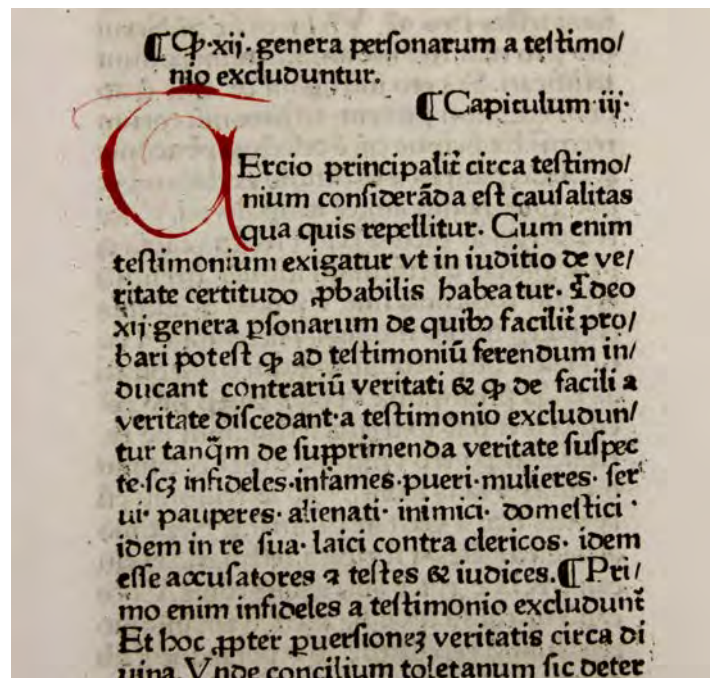 ¶Qꝙ·xij·genera perſonarum a teſtimo/
nio excluduntur.
¶Capitulum iij·
TErcio principalit̃ circa teſtimo/
nium conſiderãda eſt cauſalitas
qua quis repellitur. Cum enim
teſtimonium exigatur vt in iuditio de ve/
ritate certitudo ꝓbabilis habeatur. Ideo
xij·genera ꝑſonarum de quibꝰ facilit̃ pro/
bari poteſt ꝙ ad teſtimoniũ ferendum in/
ducant contrariũ veritati & ꝙ de facili a
veritate diſcedant·a teſtimonio excludun/
tur tanq̃m de ſupprimenda veritate ſuſpec
te·ſcꝫ infideles·infames·pueri·mulieres· ſer
ui· pauperes· alienati· inimici· domeſtici·
idem in re ſua· laici contra clericos· idem
eſſe accuſatores ⁊ teſtes & iudices.¶Pri/
mo enim infideles a teſtimonio excludunt̃
Et hoc ꝓpter ꝑuerſioneꝫ veritatis circa di
uina. Vnde concilium toletanum ſic deter